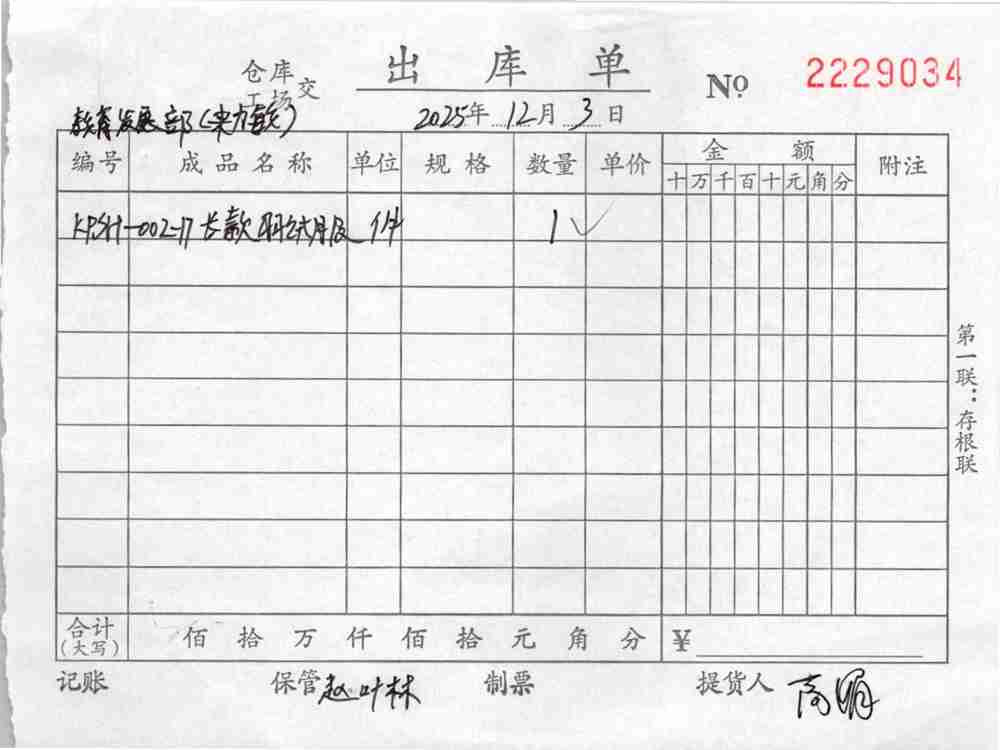 出库单
仓库
工场 交
№ 2229034
教育发展部(
2025年12月3日
编号 成品名称 单位 规格 数量 单价 金额 附注
十万千百十元角分
KPSH-002-17 长款 件 1 ✓
第一联:存根联
合计(大写) 佰 拾 万 仟 佰 拾 元 角 分 ¥
记账 保管 赵叶林 制票 提货人 高娟